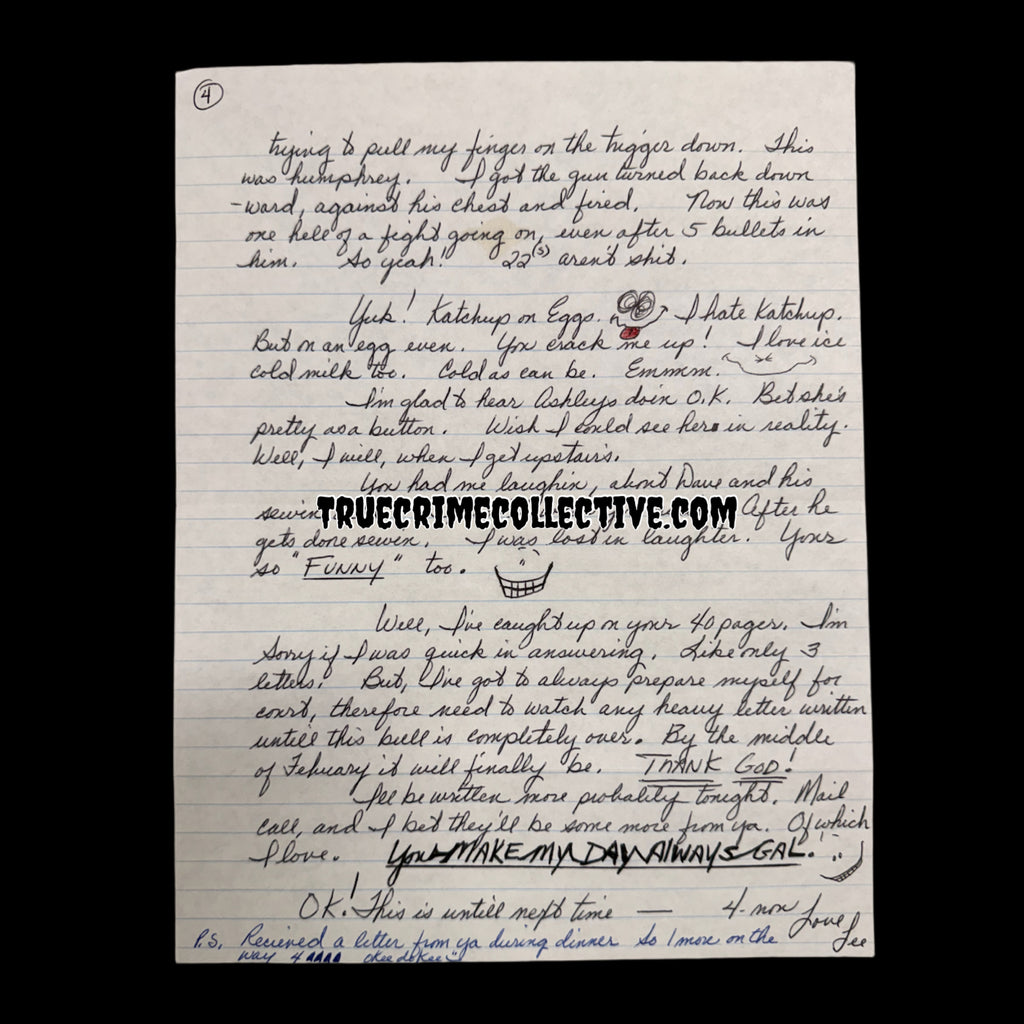 4
trying to pull my finger on the trigger down. This
was humphrey. I got the gun turned back down
-ward, against his chest and fired. Now this was
one hell of a fight going on, even after 5 bullets in
him. So yeah! 22(s) aren't shit.
Yuk! Katchup on Eggs. I hate Katchup.
But on an egg even. You crack me up! I love ice
cold milk too. Cold as can be. Emmmm.
I'm glad to hear Ashleys doin O.K. Bet she's
pretty as a button. Wish I could see her in reality.
Well, I will, when I get upstairs.
You had me laughin, about Dave and his
sewin After he
TRUECRIMECOLLECTIVE.COM
gets done sewen. I was lost in laughter. Your
so "FUNNY" too.
Well, I've caught up on your 40 pages. I'm
Sorry if I was quick in answering. Like only 3
letters. But, I've got to always prepare myself for
court, therefore need to watch any heavy letter written
untill this bull is completely over. By the middle
of Febuary it will finally be. THANK GOD!
I'll be written more probality tonight. Mail
call, and I bet they'll be some more from ya. Of which
I love. You MAKE MY DAY ALWAYS GAL!
OK! This is untill next time — 4-now Love
Lee
P.S. Recieved a letter from ya during dinner So 1 more on the
way 4 okee dokee